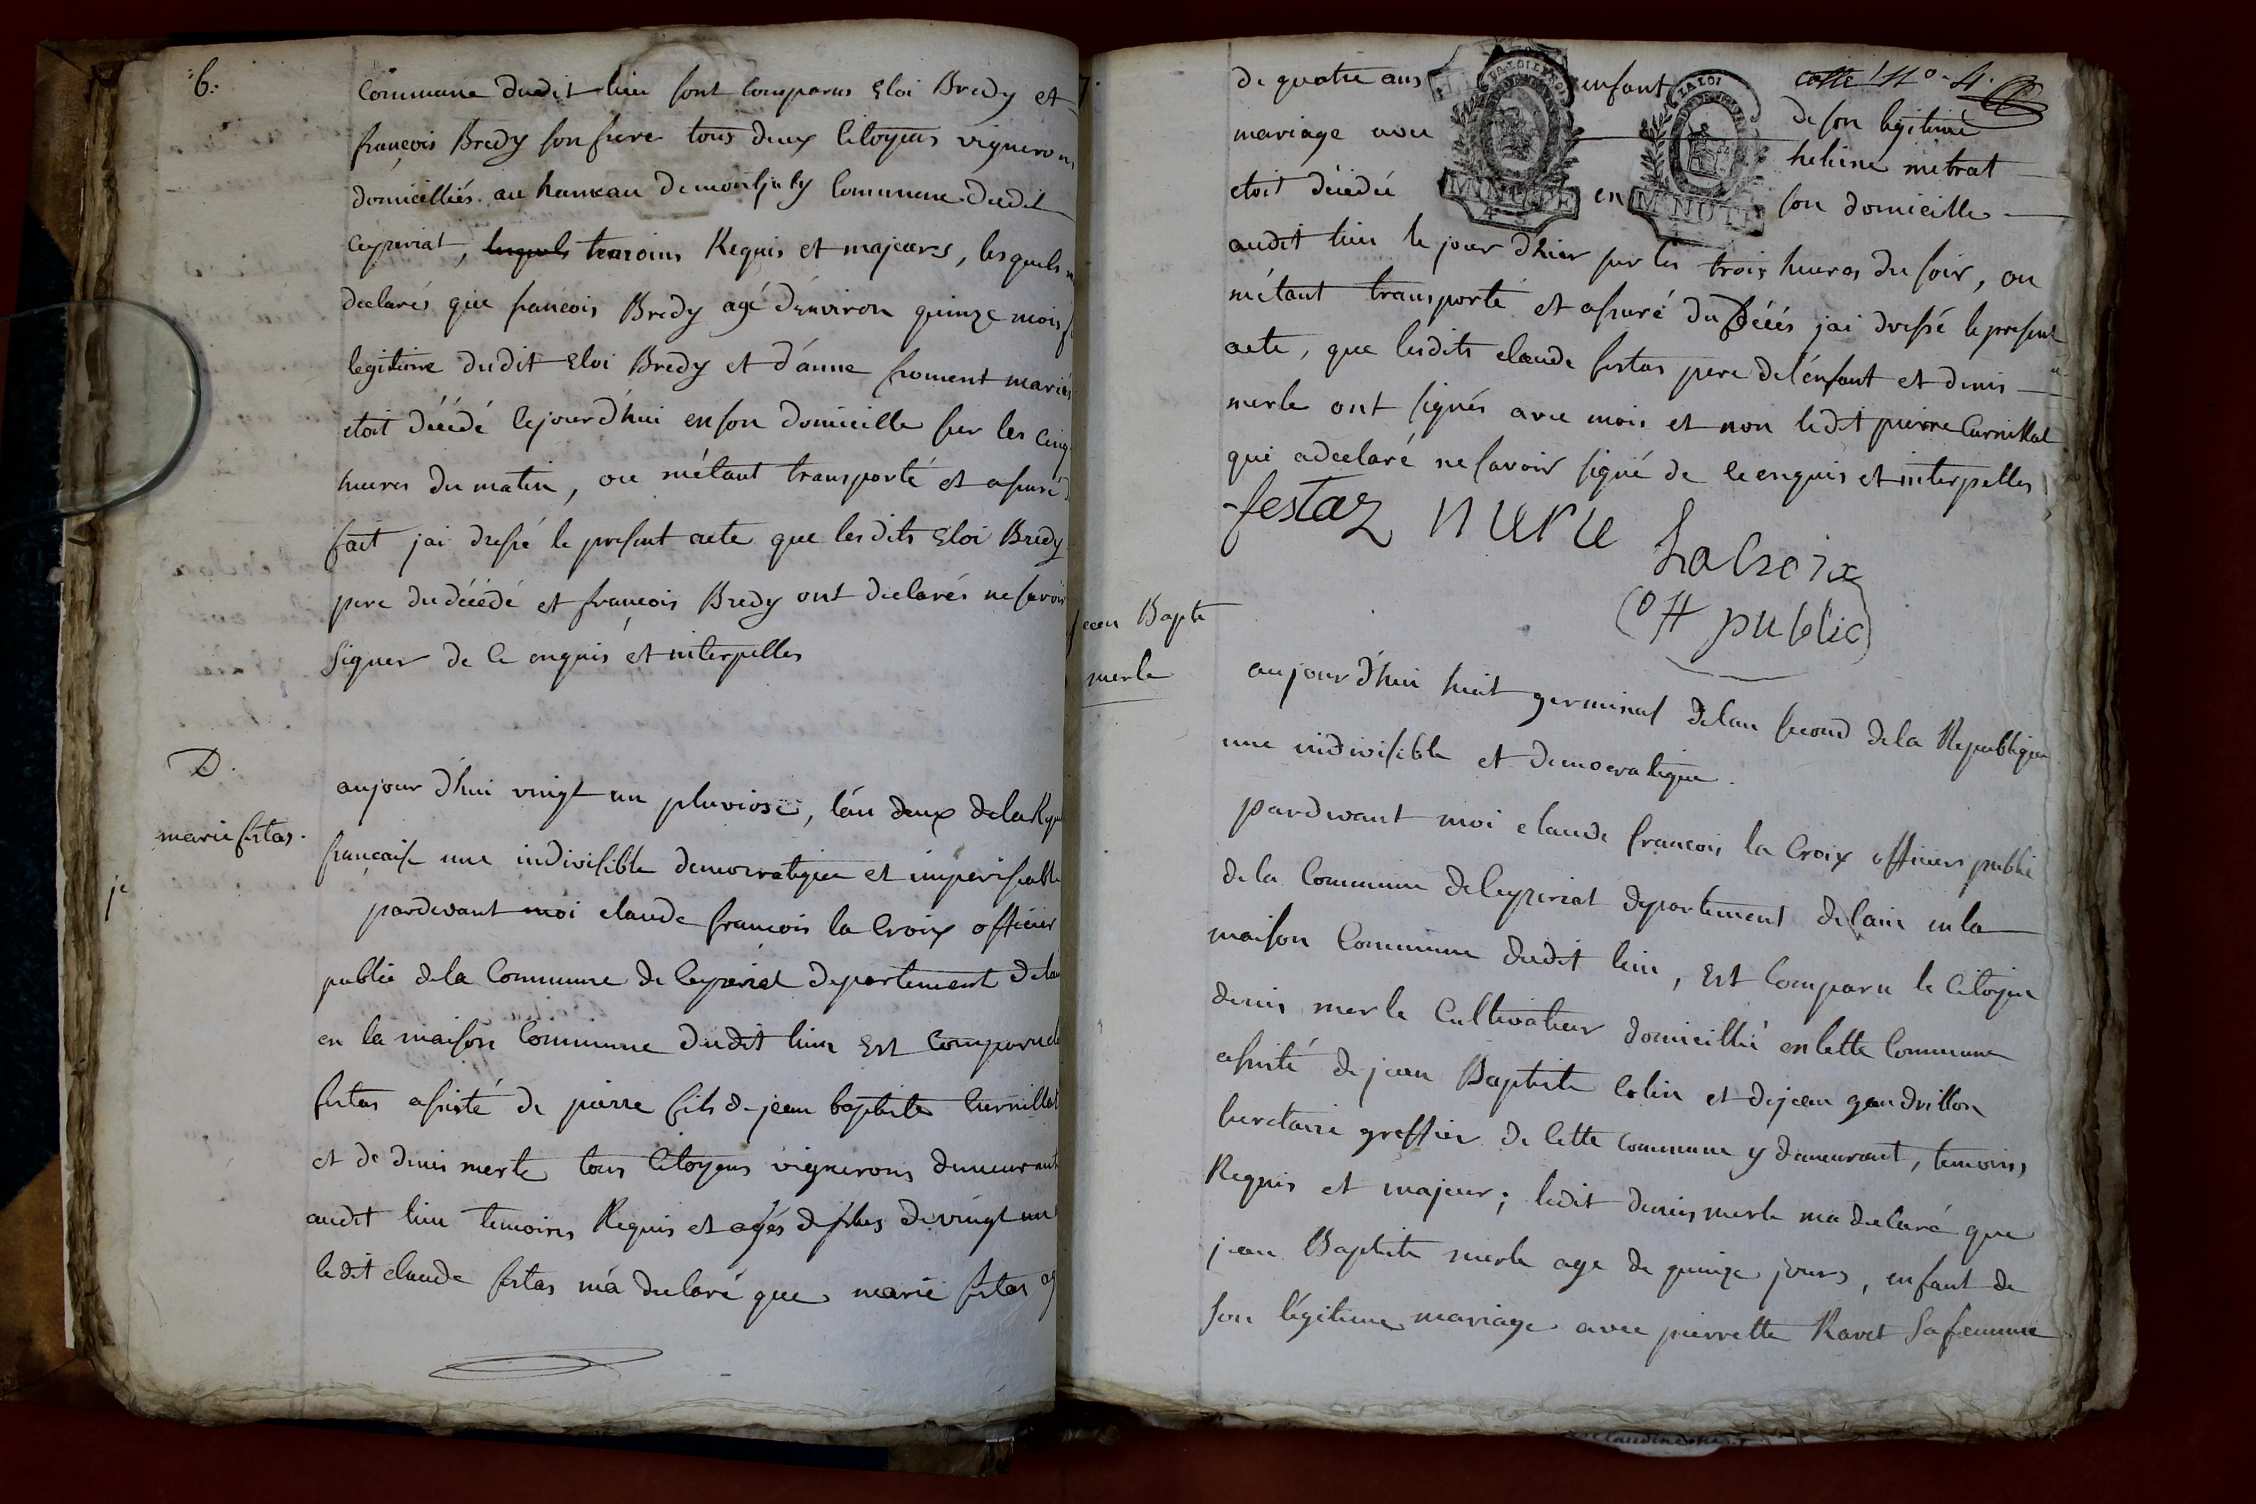 6.
Commune dudit lieu sont comparus Eloi Bredy et
françois Bredy son frere tous deux Citoyens vignerons
domiciliés au hameau de montjuly Commune dudit
Ceyzeriat, lesquels temoins Requis et majeurs, lesquels
declarés que francois Bredy agé d'environ quinze mois
legitime dudit Eloi Bredy et d'anne froment mariés
etoit décédé cejourd'hui en son domicille sur les cinq
heures du matin, ou m'étant transporté et assuré
fait jai dressé le present acte que lesdits Eloi Bredy
pere du décédé et françois Bredy ont declarés ne savoir
signer de ce enquis et interpelles
D.
marie festas.
aujourd'hui vingt un pluviose, l'an deux de la Repu
française une indivisible democratique et imperissable
pardevant moi claude francois la Croix officier
public de la Commune de Ceyzeriat departement de lain
en la maison Commune dudit lieu Est Comparu cl
festas assisté de pierre fils de jean baptiste Curnillat
et de denis merle tous Citoyens vignerons demeurant
audit lieu temoins Requis et agés de plus de vingt un
ledit claude festas m'a declaré que marie festas ag
je
7.
de quatre ans enfant cotte No. 4.
de son legitime
mariage avec helene mitrat
etoit décédé en son domicille
audit lieu le jour d'hier sur les trois heures du soir, ou
m'étant transporté et assuré du Décés jai dressé le present
acte, que lesdits claude festas pere de l'enfant et denis
merle ont signés avec mois et non ledit pierre Curnillat
qui a declaré ne savoir signé de ce enquis et interpelles
LA LOI
MINUTE
LA LOI
MINUTE
festaz merle Lacroix
off public
jean Bapte
merle
aujourd'hui huit germinal de lan second de la Republique
une indivisible et democratique.
pardevant moi claude francois la Croix officier public
de la Commune de Ceyzeriat departement de lain en la
maison Commune dudit lieu, Est Comparu le Citoyen
denis merle Cultivateur domicillié en cette Commune
assisté de jean Baptiste Colin et de jean gendrillon
secretaire greffier de cette commune y demeurant, temoins
Requis et majeur; ledit denis merle ma declaré que
jean Baptiste merle age de quinze jours, enfant de
son légitime mariage avec pierrette Ravet sa femme